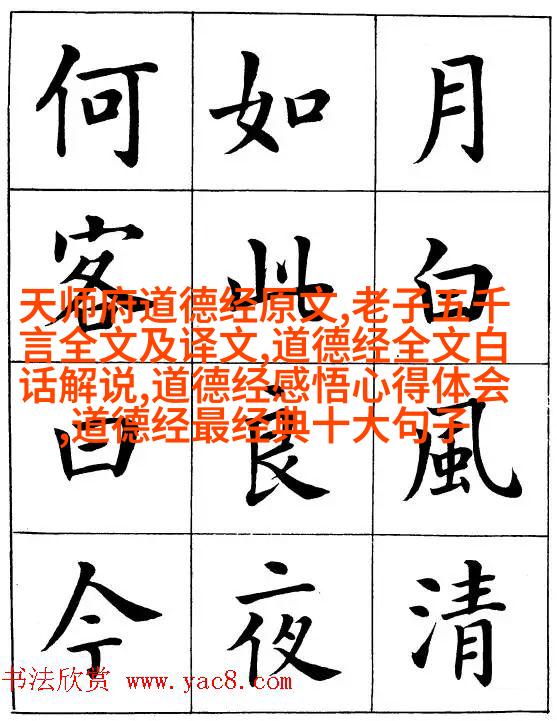 月白風清
如此良夜
何客曰今
天师府道德经原文,老子五千
言全文及译文,道德经全文白
话解说,道德经感悟心得体会
,道德经最经典十大句子
书法欣赏 www.yac8.com